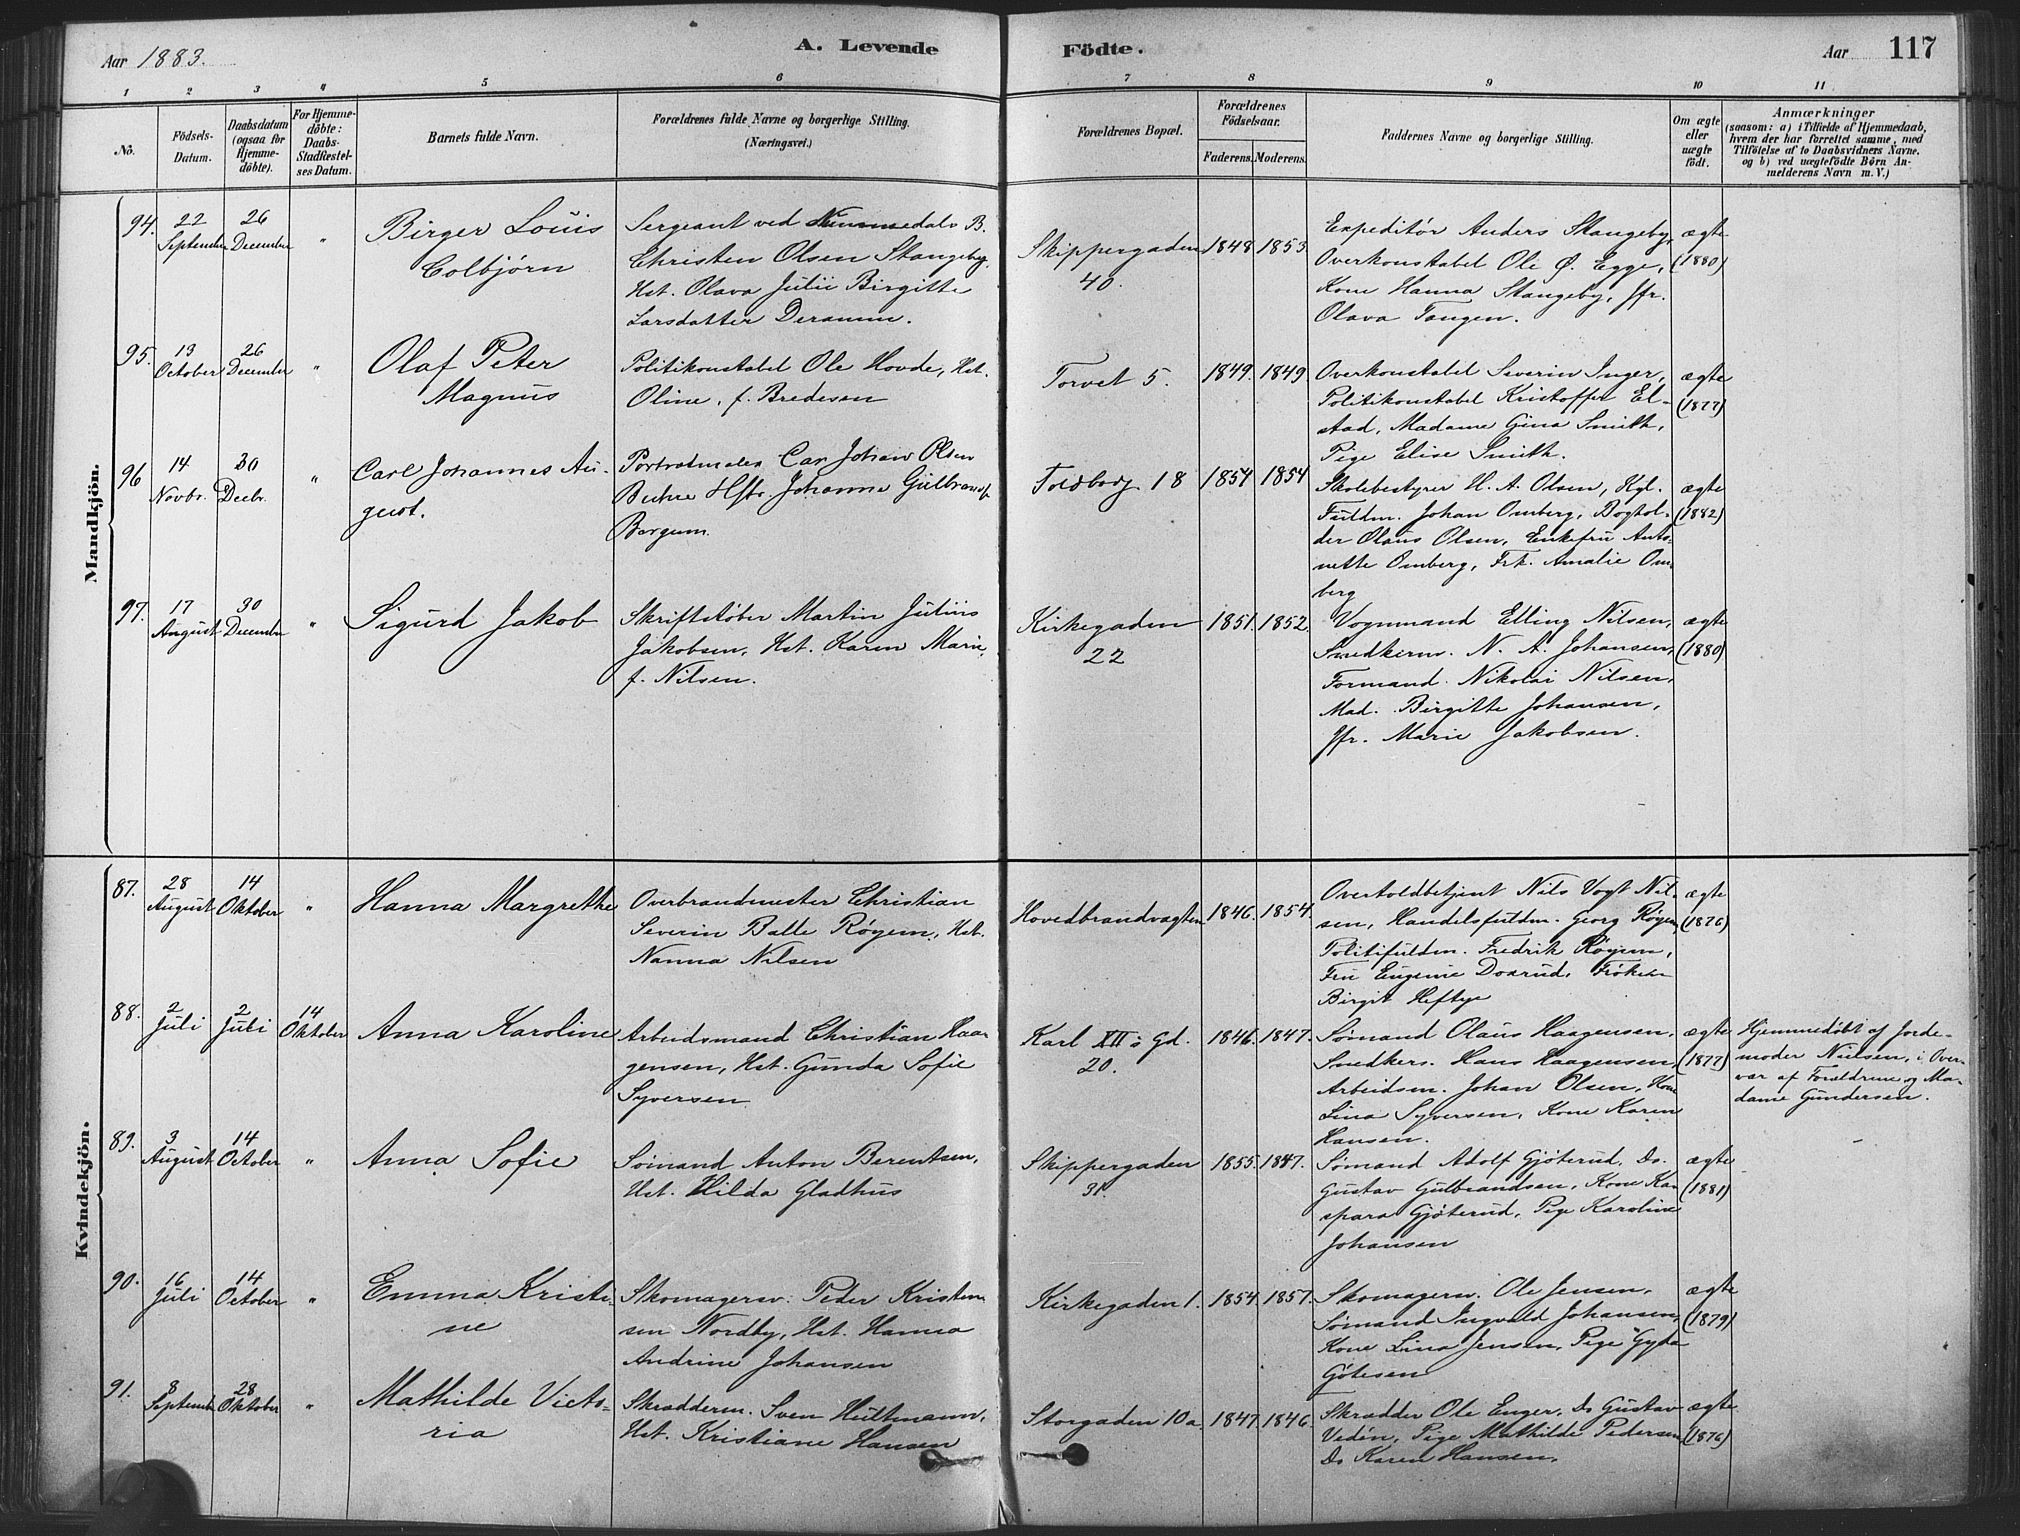 Aar 1883.
A. Levende Födte.
Aar 117
1 2 3 4 5 6 7 8 9 10 11
No.
Födsels-Datum.
Daabsdatum (ogsaa for Hjemme-döbte).
For Hjemme-döbte: Daabs-Stadfæstel-ses Datum.
Barnets fulde Navn.
Forældrenes fulde Navne og borgerlige Stilling.
(Næringsvei.)
Forældrenes Bopæl.
Forældrenes Födselsaar.
Faderens. Moderens.
Faddernes Navne og borgerlige Stilling.
Om ægte eller uægte födt.
Anmærkninger
(saasom: a) i Tilfælde af Hjemmedaab,
hvem der har forrettet samme, med
Tilföielse af to Daabsvidners Navne.
og b) ved uægtefödte Börn An-
melderens Navn m. V.)
Mandkjön.
94. 22 September 26 December "
Birger Louis
Colbjørn
Sergeant ved Nummedals B.
Christen Olsen Stangeby,
Hst. Olava Julii Birgitte
Larsdatter Deramm.
Skippergaden
40.
1848 1853
Expeditør Anders Stangeby,
Overkonstabel Ole Ø. Egge,
Kone Hanna Stangeby, Jfr.
Olava Tangen.
ægte
(1880)
95. 13 October 26 December "
Olaf Peter
Magnus
Politikonstabel Ole Hovde, Hst.
Oline, f. Bredesen
Torvet 5.
1849. 1849
Overkonstabel Severin Inger,
Politikonstabel Kristoffer El-
stad, Madame Gina Smith,
Pige Elise Smith.
ægte
(1877)
96 14 Novbr. 30 Decbr. "
Carl Johannes Au-
gust.
Portrætmaler Carl Johan Olsen
Hstr. Johanne Gulbransd.
Borgum.
Toldbodg. 18
1854 1854
Skolebestyrer H. A. Olsen, Hgl.
Fuldm. Johan Omberg, Boghol-
der Olaus Olsen, Enkefru Anto-
nette Omberg, Frk. Amalie Om-
berg
ægte
(1882)
97. 17 August 30 December "
Sigurd Jakob
Skriftstøber Martin Julius
Jakobsen, Hst. Karen Marie,
f. Nilsen.
Kirkegaden
22
1851. 1852.
Vognmand Elling Nilsen,
Snedkerm. N. A. Johansen,
Formand Nikolai Nilsen,
Mad. Birgitte Johansen,
Jfr. Marie Jakobsen.
ægte
(1880)
Kvindekjön.
87. 28 August 14 Oktober "
Hanna Margrethe
Overbrandmester Christian
Severin Balle Røyem, Hst.
Nanna Nilsen
Hovedbrandvagten
1846. 1854.
Overtoldbetjent Nils Vogt Nil-
sen, Handelsfuldm. Georg Røyem,
Politifuldm. Fredrik Røyem,
Fru Eugenie Dosrud, Frøken
Birgit Heftye
ægte
(1876)
88. 2 Juli 2 Juli 14 Oktober
Anna Karoline
Arbeidsmand Christian Haa-
gensen, Hst. Gunda Sofie
Syversen
Karl XII's Gd.
20.
1846. 1847.
Sømand Olaus Haagensen,
Snedkers. Hans Haagensen,
Arbeidsm. Johan Olsen, Kone
Lina Syversen, Kone Karen
Hansen.
ægte
(1877)
Hjemmedøbt af Jorde-
moder Nielsen, i Over-
vær af Forældrene og Ma-
dame Gundersen.
89. 3 August 14 October "
Anna Sofie
Sømand Anton Berentsen,
Hst. Hilda Gladhus
Skippergaden
31.
1855. 1847.
Sømand Adolf Gjøterud, Do.
Gustav Gulbrandsen, Kone Ka-
spara Gjøterud, Pige Karoline
Johansen
ægte
(1881)
90. 16 Juli 14 October "
Emma Kristi-
ne
Skomagersv. Peder Kristen-
sen Nordby, Hst. Hanna
Andrine Johansen
Kirkegaden 1.
1854. 1857.
Skomagerm. Ole Jensen,
Sømand Ingvald Johansen,
Kone Lina Jensen, Pige Gyda
Gøtesen
ægte
(1879)
91. 8 September 28 Oktober "
Mathilde Victo-
ria
Skrædderm. Sven Hultmann,
Hst. Kristiane Hansen
Storgaden 10a
1847. 1846.
Skrædder Ole Enger, Do Gustav
Vedén, Pige Mathilde Pedersen
Do Karen Hansen.
ægte
(1876)